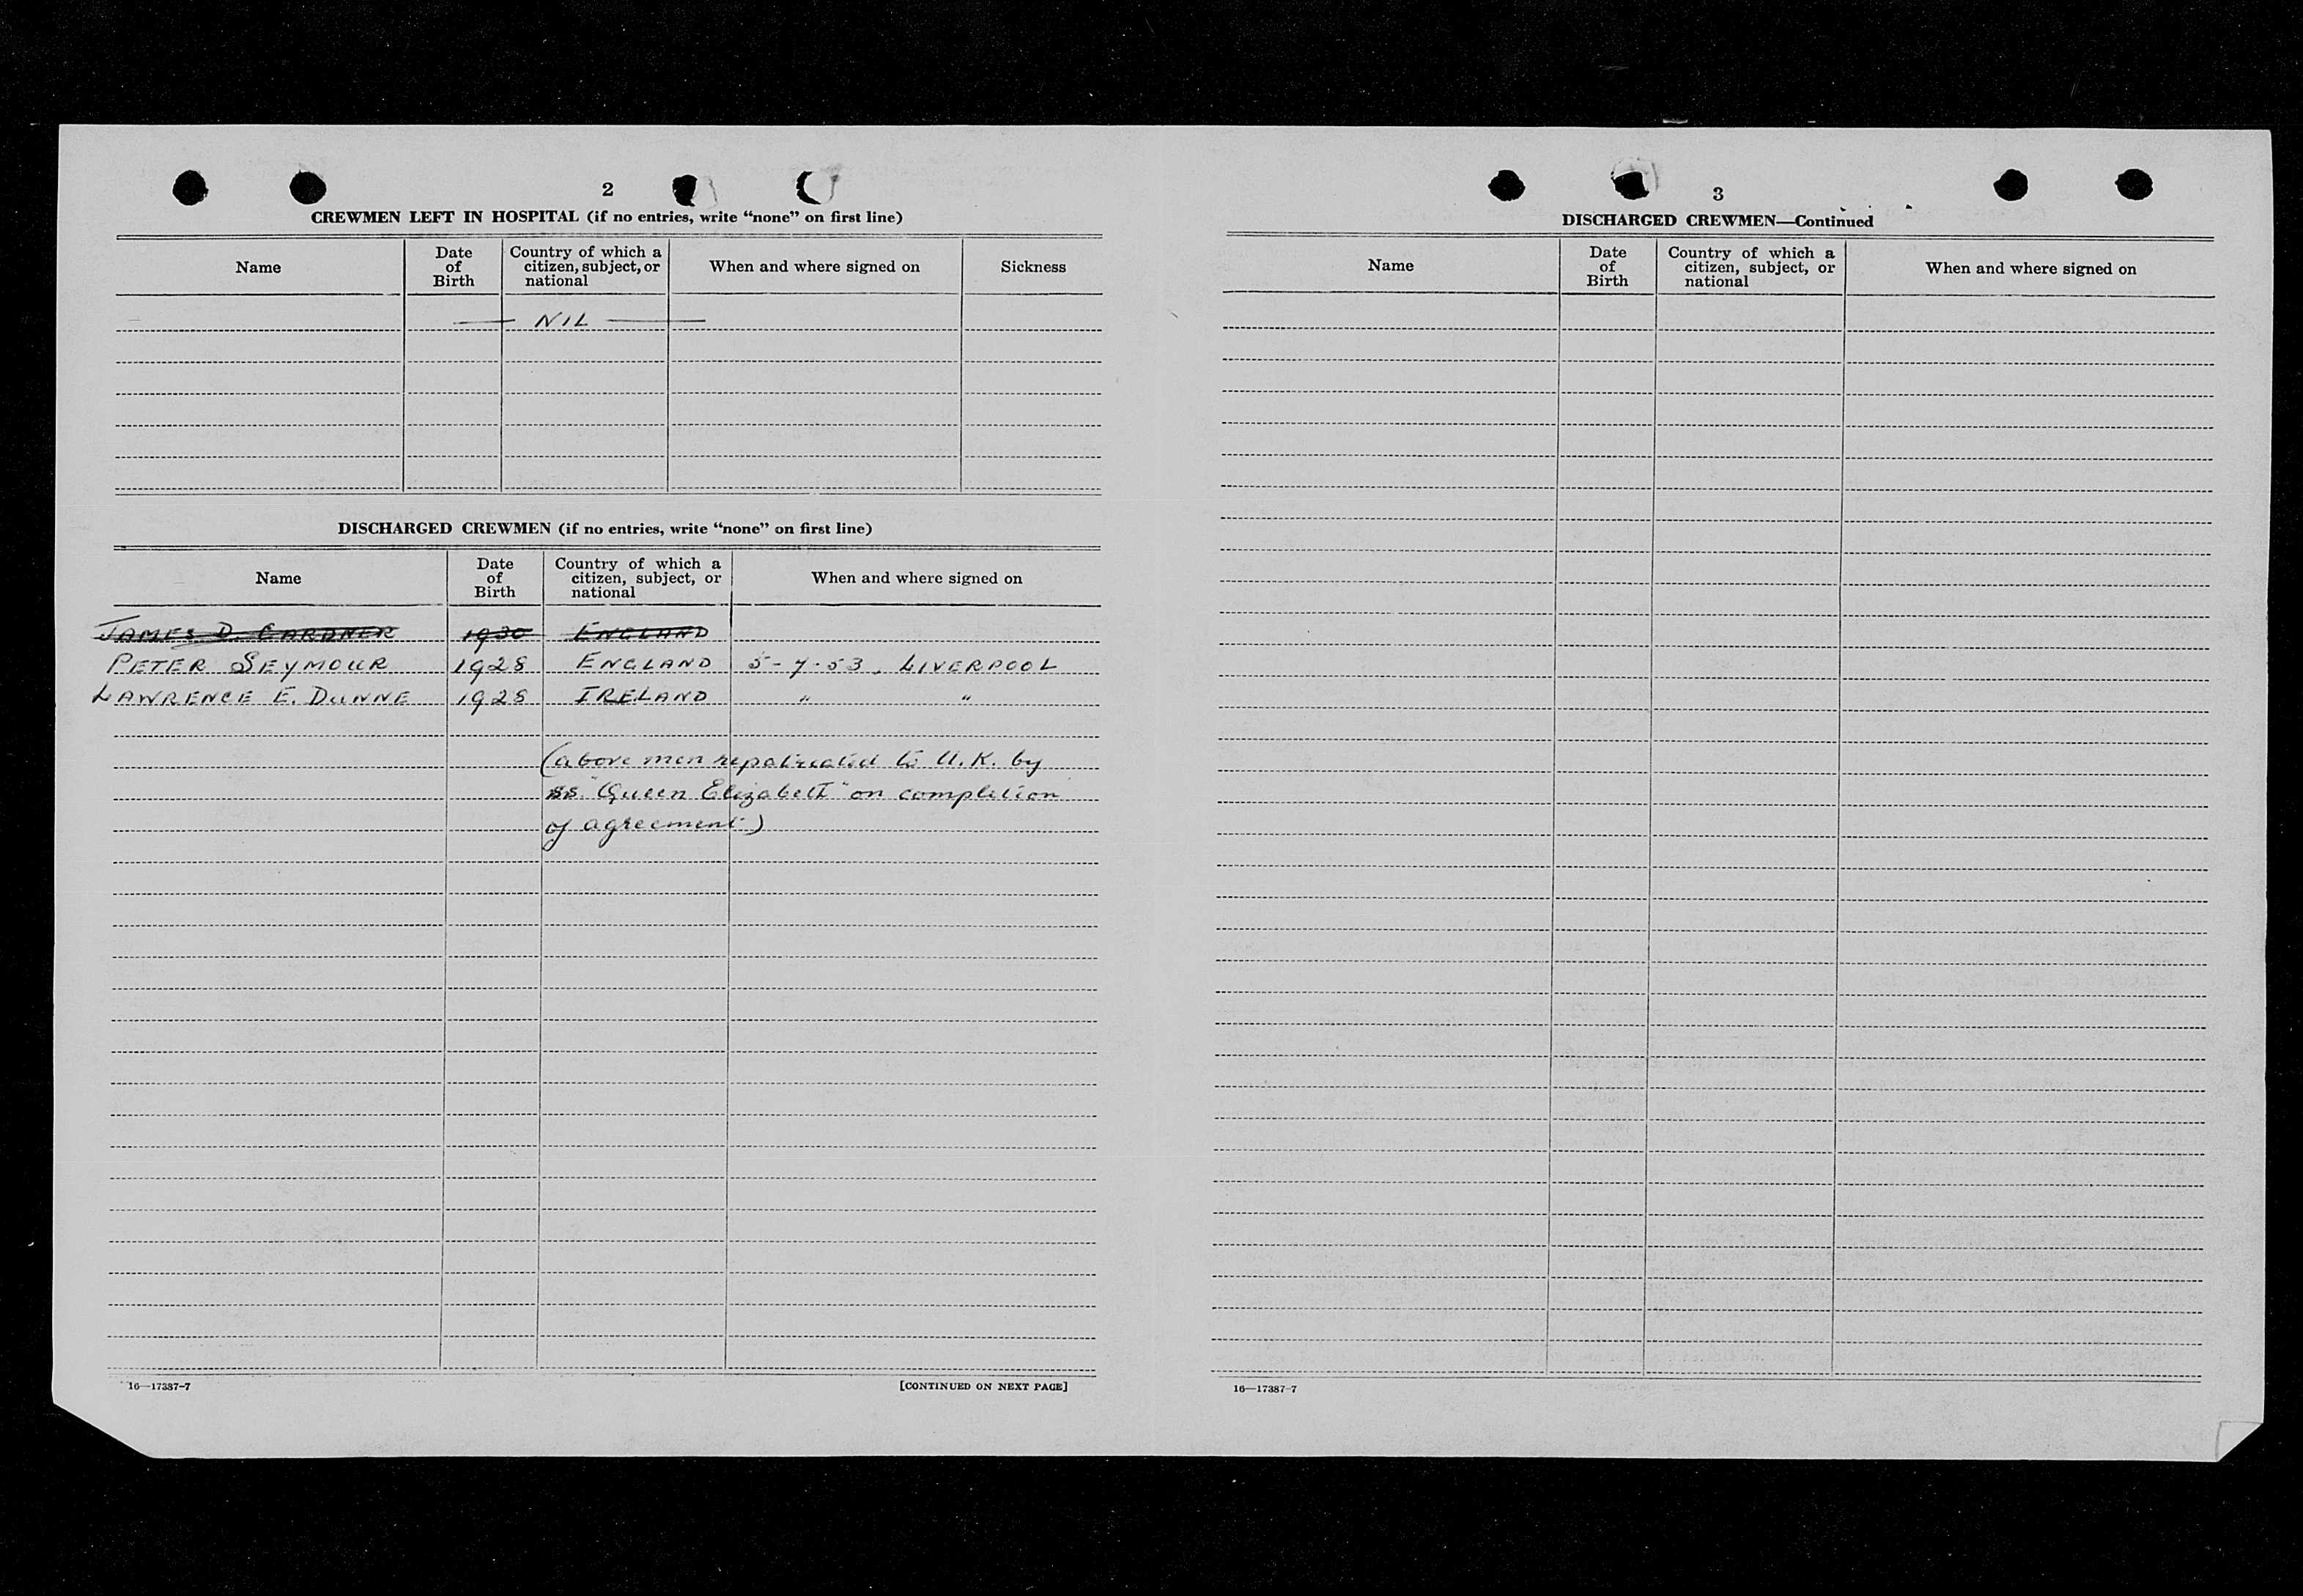 2
CREWMEN LEFT IN HOSPITAL (if no entries, write “none” on first line)
Name
Date of Birth
Country of which a citizen, subject, or national
When and where signed on
Sickness
— NIL —
DISCHARGED CREWMEN (if no entries, write “none” on first line)
Name
Date of Birth
Country of which a citizen, subject, or national
When and where signed on
JAMES D. GARDNER 1930 ENGLAND
PETER SEYMOUR 1928 ENGLAND 5-7-53, LIVERPOOL
LAWRENCE E. DUNNE 1928 IRELAND " "
(above men repatriated to U.K. by
ss. "Queen Elizabeth" on completion
of agreement)
16—17387-7
[CONTINUED ON NEXT PAGE]
3
DISCHARGED CREWMEN—Continued
Name
Date of Birth
Country of which a citizen, subject, or national
When and where signed on
16—17387-7